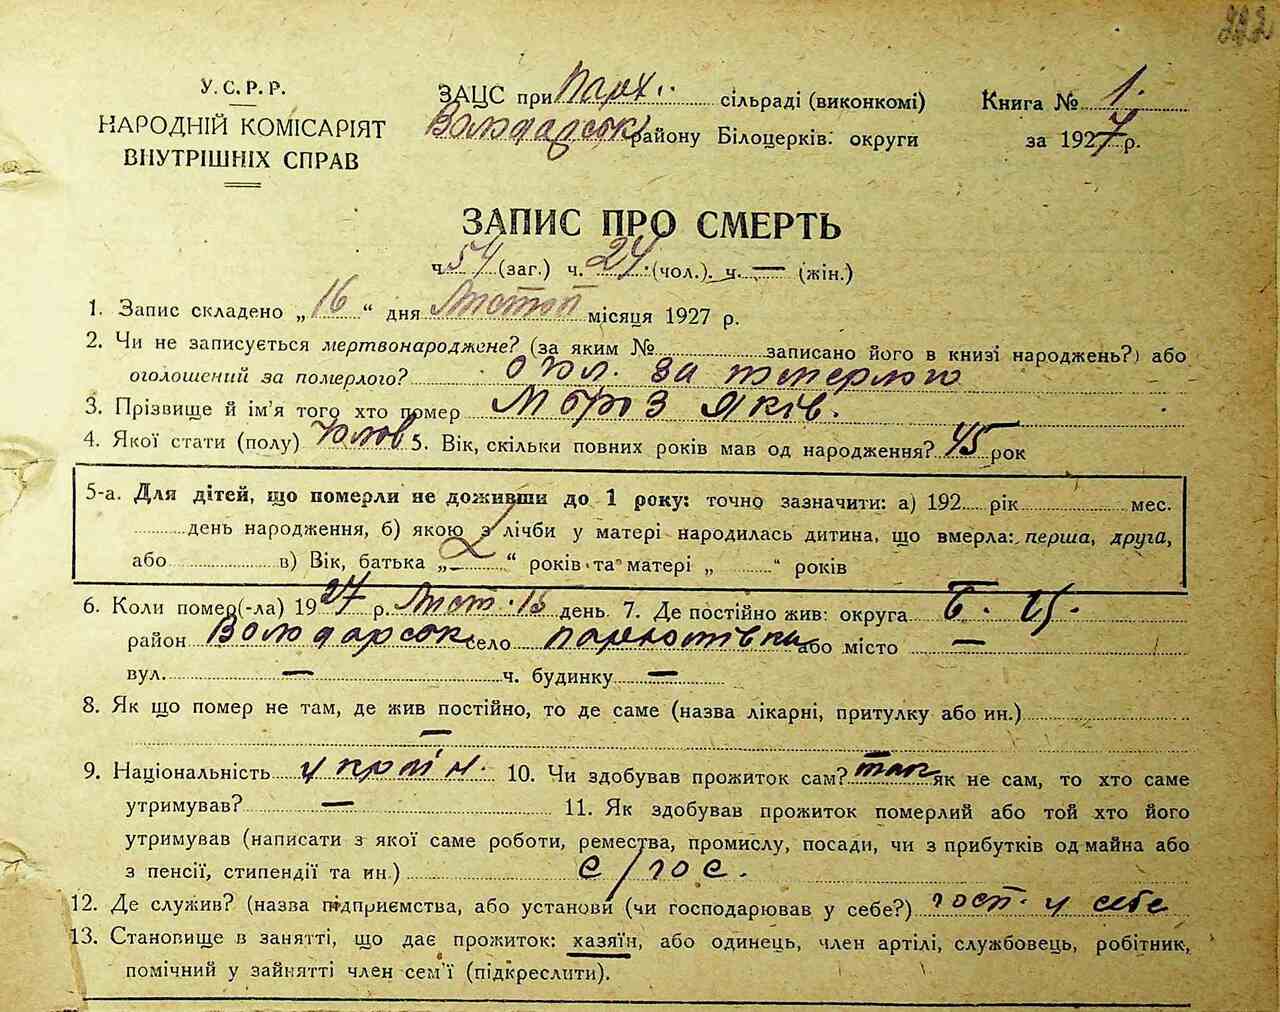 222
У.С.Р.Р.
НАРОДНІЙ КОМІСАРІЯТ
ВНУТРІШНІХ СПРАВ
ЗАЦС при Парх.. сільраді (виконкомі)
Володарськ району Білоцерків. округи
Книга № 1.
за 1927 р.
ЗАПИС ПРО СМЕРТЬ
ч. 54 (заг.) ч. 24 (чол.). ч. — (жін.)
1. Запис складено „16“ дня Листоп місяця 1927 р.
2. Чи не записується мертвонароджене? (за яким № записано його в книзі народжень?) або
оголошений за померлого? огол. за померлого
3. Прізвище й ім'я того хто помер Мороз Яків.
4. Якої стати (полу) Чолов 5. Вік, скільки повних років мав од народження? 45 рок
5-а. Для дітей, що померли не доживши до 1 року: точно зазначити: а) 192 рік мес.
день народження, б) якою з лічби у матері народилась дитина, що вмерла: перша, друга,
або в) Вік, батька „ “ років та матері „ “ років
6. Коли помер(-ла) 1927 р. Лист. 15 день 7. Де постійно жив: округа Б. Ц.
район Володарськ село Пархомівка або місто —
вул. — ч. будинку —
8. Як що помер не там, де жив постійно, то де саме (назва лікарні, притулку або ин.)
—
9. Національність україн. 10. Чи здобував прожиток сам? так як не сам, то хто саме
утримував? — 11. Як здобував прожиток померлий або той хто його
утримував (написати з якої саме роботи, ремества, промислу, посади, чи з прибутків од майна або
з пенсії, стипендії та ин.) с/гос.
12. Де служив? (назва підприємства, або установи (чи господарював у себе?) госп. у себе
13. Становище в занятті, що дає прожиток: хазяїн, або одинець, член артілі, службовець, робітник,
помічний у зайнятті член сем'ї (підкреслити).